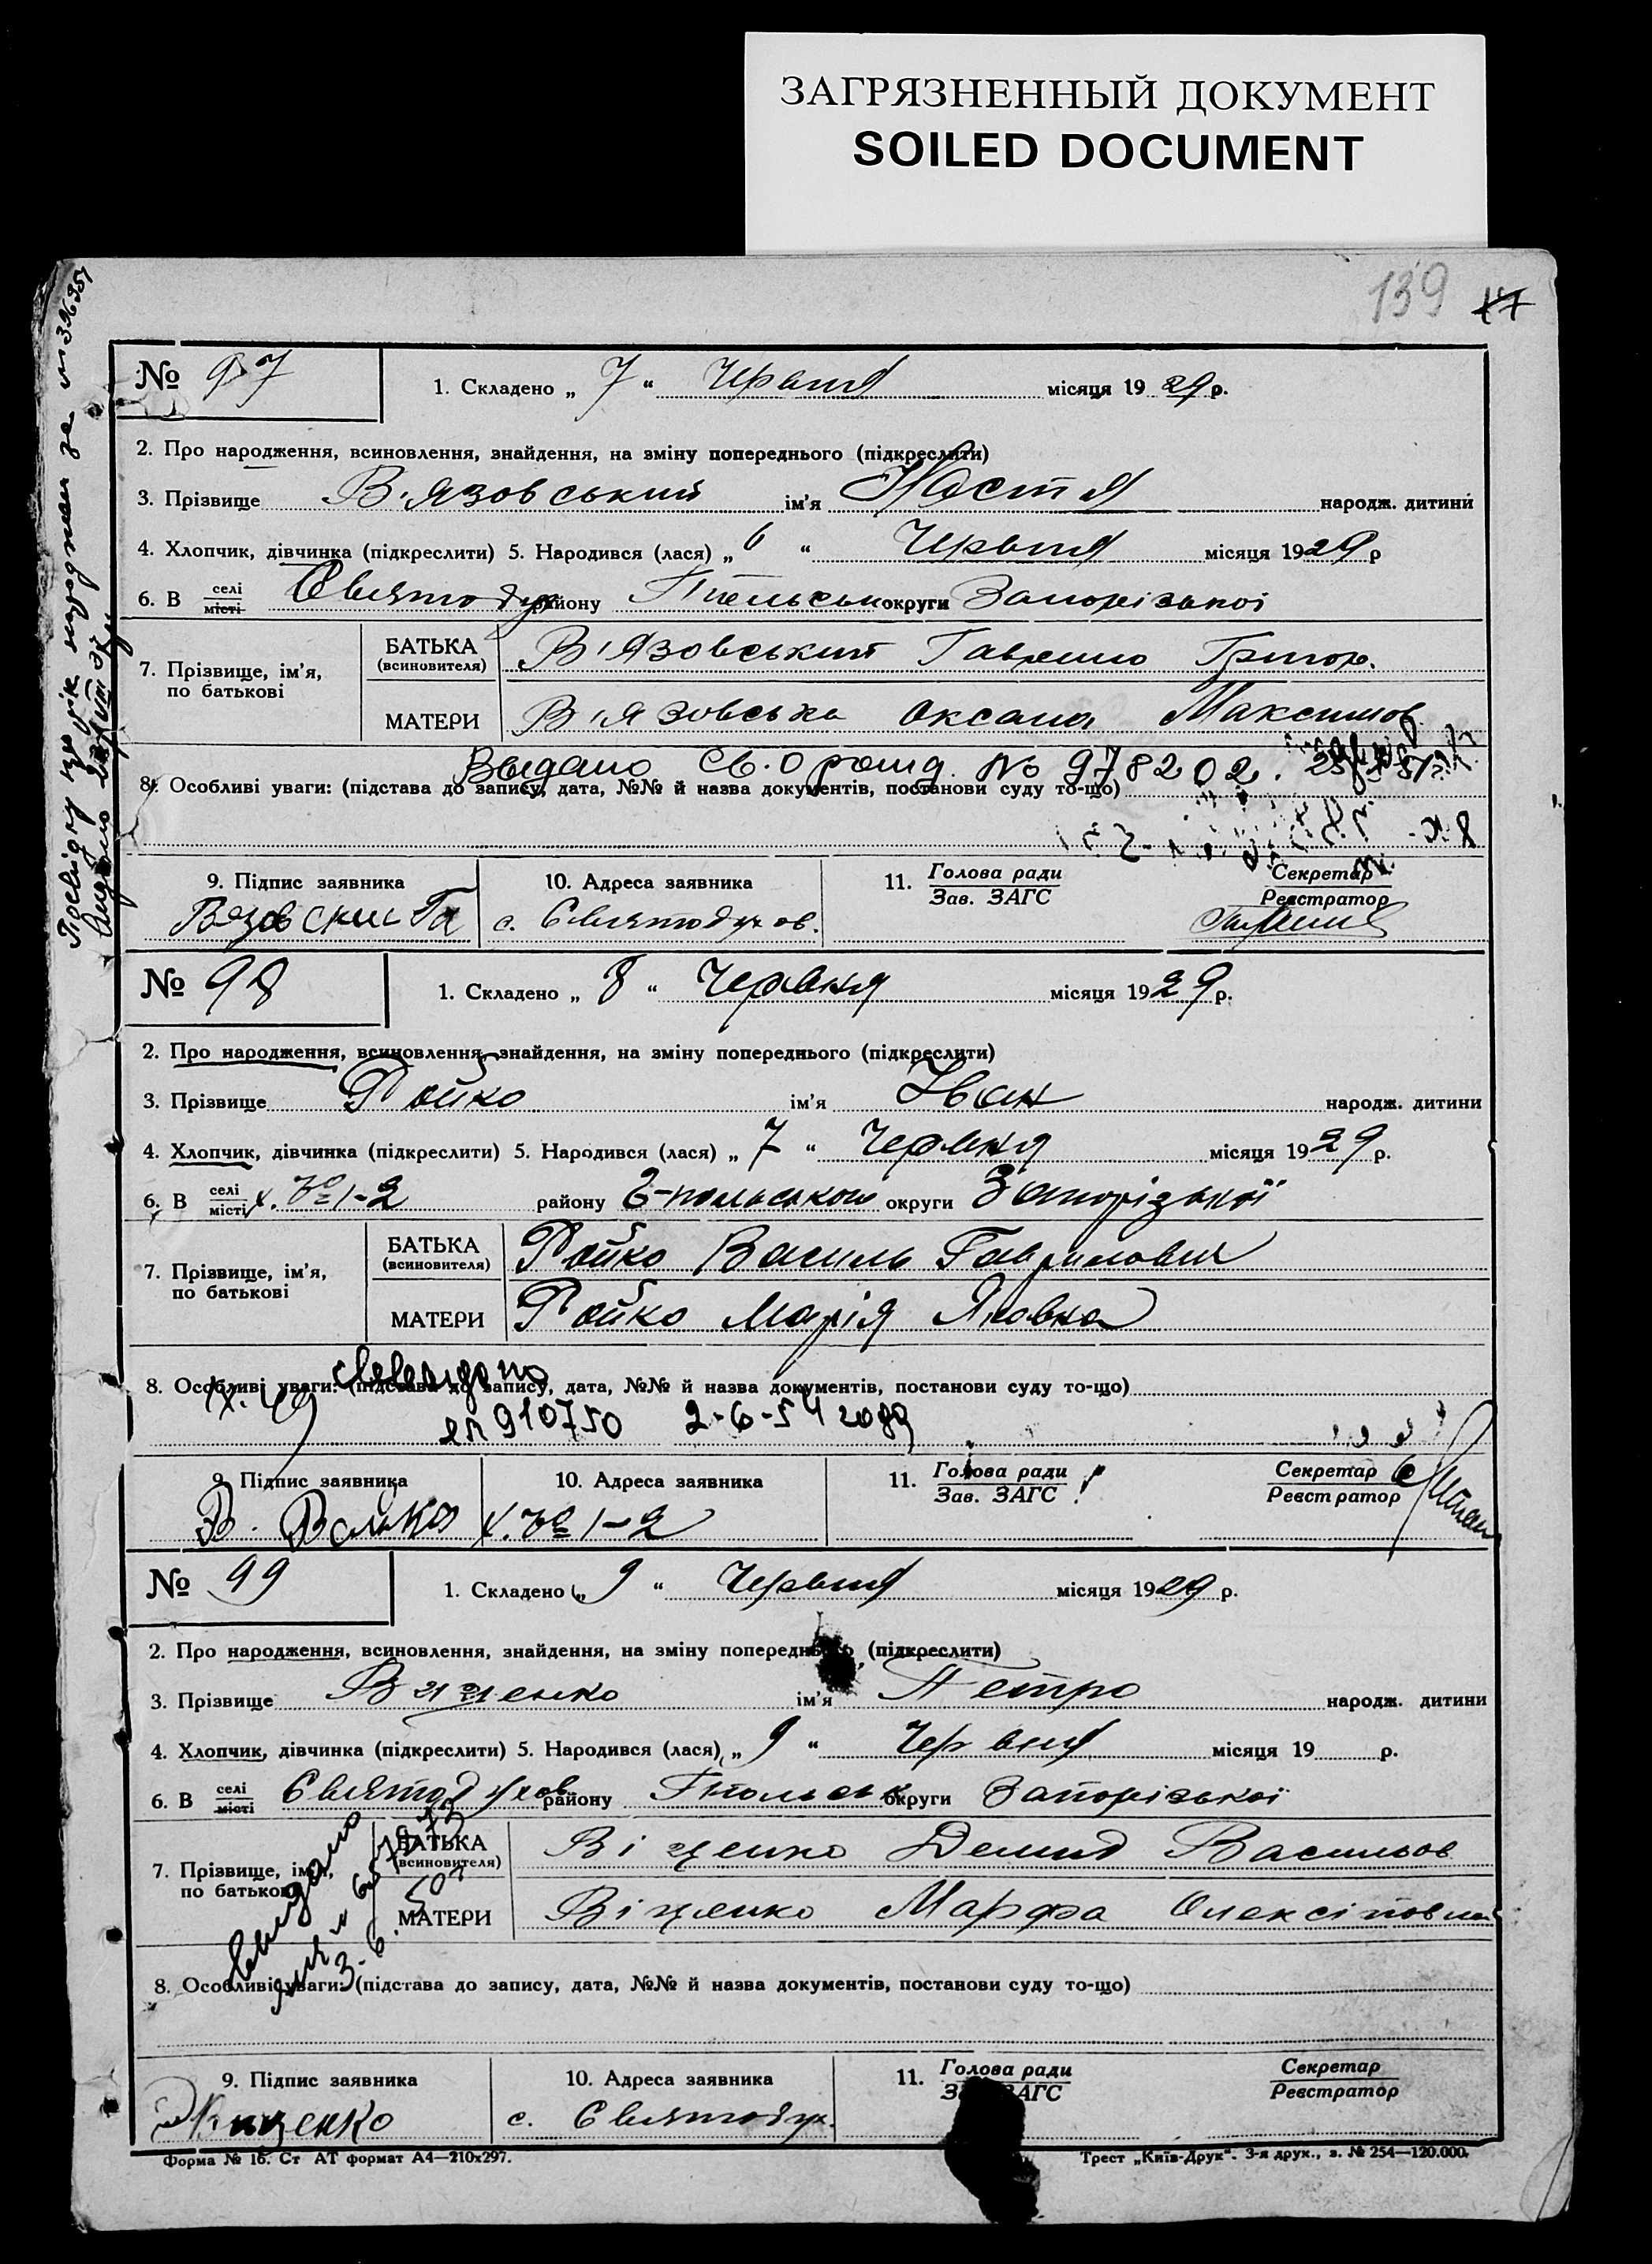 ЗАГРЯЗНЕННЫЙ ДОКУМЕНТ
SOILED DOCUMENT
139
№ 97
1. Складено „ 7 “ Червня місяця 19 29 р.
2. Про народження, всиновлення, знайдення, на зміну попереднього (підкреслити)
3. Прізвище В'язовський ім'я Настя народж. дитини
4. Хлопчик, дівчинка (підкреслити) 5. Народився (лася) „ 6 “ Червня місяця 19 29 р
6. В селі місті Святодух району округи Запорізької
7. Прізвище, ім'я, по батькові
БАТЬКА (всиновителя) В'язовський Гаврило Григор.
МАТЕРИ В'язовська Оксана Максимов
Выдано св. о рожд. № 978202.
8. Особливі уваги: (підстава до запису, дата, №№ й назва документів, постанови суду то-що)
9. Підпис заявника 10. Адреса заявника 11. Голова ради Зав. ЗАГС Секретар Реєстратор
Вязовский Га с. Святодухов.
№ 98
1. Складено „ 8 “ Червня місяця 19 29 р.
2. Про народження, всиновлення, знайдення, на зміну попереднього (підкреслити)
3. Прізвище Ройко ім'я Іван народж. дитини
4. Хлопчик, дівчинка (підкреслити) 5. Народився (лася) „ 7 “ Червня місяця 19 29 р.
6. В селі місті х. № 1-2 району Г-польського округи Запорізької
7. Прізвище, ім'я, по батькові
БАТЬКА (всиновителя) Ройко Василь Гаврилович
МАТЕРИ Ройко Марія Яковна
8. Особливі уваги: (підстава до запису, дата, №№ й назва документів, постанови суду то-що)
910750 2-6-54 года
9. Підпис заявника 10. Адреса заявника 11. Голова ради Зав. ЗАГС Секретар Реєстратор
В. х. № 1-2
№ 99
1. Складено „ 9 “ Червня місяця 19 29 р.
2. Про народження, всиновлення, знайдення, на зміну попереднього (підкреслити)
3. Прізвище ім'я Петро народж. дитини
4. Хлопчик, дівчинка (підкреслити) 5. Народився (лася) „ 9 “ Червня місяця 19 р.
6. В селі місті Святодухов району Гпольськ округи Запорізької
7. Прізвище, ім'я, по батькові
БАТЬКА (всиновителя) Віценко Демид Васильов
МАТЕРИ Віценко Марфа Олексіївна
8. Особливі уваги: (підстава до запису, дата, №№ й назва документів, постанови суду то-що)
9. Підпис заявника 10. Адреса заявника 11. Голова ради Зав. ЗАГС Секретар Реєстратор
Виценко с. Святодух.
Форма № 16. Ст АТ формат А4—210х297.
Трест „Київ-Друк“. 3-я друк., з. № 254—120.000.